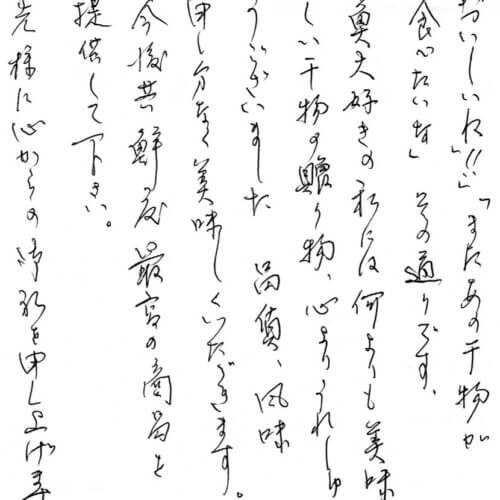 おいしいね!!」「またあの干物が
食べたいな」その通りです、
魚大好きの私には何よりも美味
しい干物の贈り物、心よりうれしゅ
うございました 品質、風味
申し分なく美味しくいただきます。
今後共鮮度最高の商品を
提供して下さい。
先様に心からの御礼を申し上げま